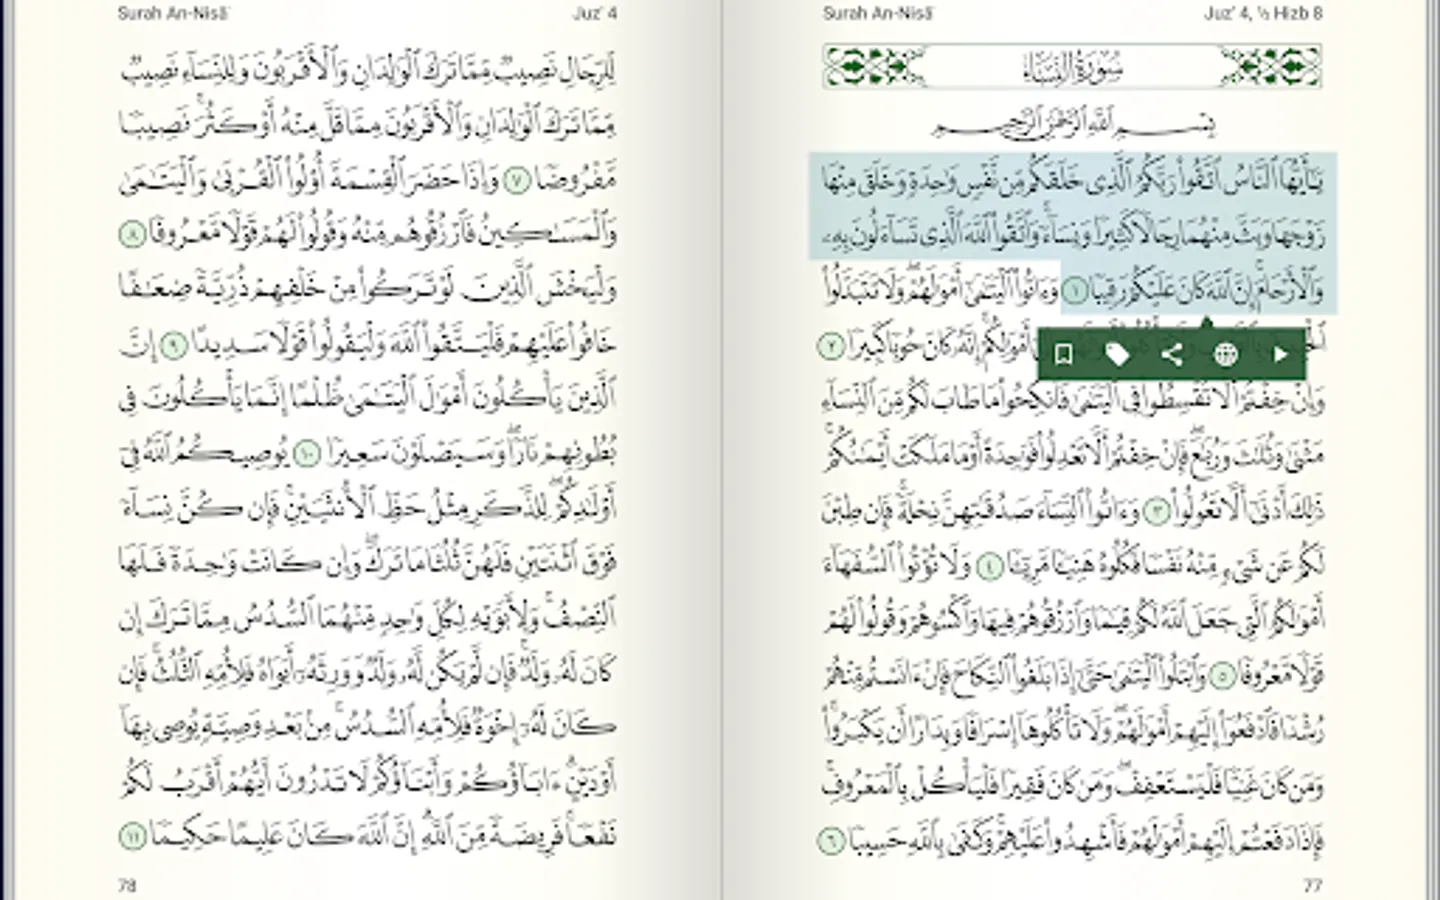 Surah An-Nisāʾ
Juz' 4, ½ Hizb 8
سُورَةُ النِّسَاءِ
بِسْمِ ٱللَّهِ ٱلرَّحْمَٰنِ ٱلرَّحِيمِ
يَٰٓأَيُّهَا ٱلنَّاسُ ٱتَّقُوا۟ رَبَّكُمُ ٱلَّذِى خَلَقَكُم مِّن نَّفْسٍ وَٰحِدَةٍ وَخَلَقَ مِنْهَا
زَوْجَهَا وَبَثَّ مِنْهُمَا رِجَالًا كَثِيرًا وَنِسَآءً ۚ وَٱتَّقُوا۟ ٱللَّهَ ٱلَّذِى تَسَآءَلُونَ بِهِۦ
وَٱلْأَرْحَامَ ۚ إِنَّ ٱللَّهَ كَانَ عَلَيْكُمْ رَقِيبًا ١ وَءَاتُوا۟ ٱلْيَتَٰمَىٰٓ أَمْوَٰلَهُمْ ۖ وَلَا تَتَبَدَّلُوا۟
أَمْوَٰلِكُمْ ۚ إِنَّهُۥ كَانَ حُوبًا كَبِيرًا ٢
وَإِنْ خِفْتُمْ أَلَّا تُقْسِطُوا۟ فِى ٱلْيَتَٰمَىٰ فَٱنكِحُوا۟ مَا طَابَ لَكُم مِّنَ ٱلنِّسَآءِ
مَثْنَىٰ وَثُلَٰثَ وَرُبَٰعَ ۖ فَإِنْ خِفْتُمْ أَلَّا تَعْدِلُوا۟ فَوَٰحِدَةً أَوْ مَا مَلَكَتْ أَيْمَٰنُكُمْ ۚ
ذَٰلِكَ أَدْنَىٰٓ أَلَّا تَعُولُوا۟ ٣ وَءَاتُوا۟ ٱلنِّسَآءَ صَدُقَٰتِهِنَّ نِحْلَةً ۚ فَإِن طِبْنَ
لَكُمْ عَن شَىْءٍ مِّنْهُ نَفْسًا فَكُلُوهُ هَنِيٓـًٔا مَّرِيٓـًٔا ٤ وَلَا تُؤْتُوا۟ ٱلسُّفَهَآءَ
أَمْوَٰلَكُمُ ٱلَّتِى جَعَلَ ٱللَّهُ لَكُمْ قِيَٰمًا وَٱرْزُقُوهُمْ فِيهَا وَٱكْسُوهُمْ وَقُولُوا۟ لَهُمْ
قَوْلًا مَّعْرُوفًا ٥ وَٱبْتَلُوا۟ ٱلْيَتَٰمَىٰ حَتَّىٰٓ إِذَا بَلَغُوا۟ ٱلنِّكَاحَ فَإِنْ ءَانَسْتُم مِّنْهُمْ
رُشْدًا فَٱدْفَعُوٓا۟ إِلَيْهِمْ أَمْوَٰلَهُمْ ۖ وَلَا تَأْكُلُوهَآ إِسْرَافًا وَبِدَارًا أَن يَكْبَرُوا۟ ۚ
وَمَن كَانَ غَنِيًّا فَلْيَسْتَعْفِفْ ۖ وَمَن كَانَ فَقِيرًا فَلْيَأْكُلْ بِٱلْمَعْرُوفِ ۚ
فَإِذَا دَفَعْتُمْ إِلَيْهِمْ أَمْوَٰلَهُمْ فَأَشْهِدُوا۟ عَلَيْهِمْ ۚ وَكَفَىٰ بِٱللَّهِ حَسِيبًا ٦
77
Surah An-Nisāʾ
Juz' 4
لِّلرِّجَالِ نَصِيبٌ مِّمَّا تَرَكَ ٱلْوَٰلِدَانِ وَٱلْأَقْرَبُونَ وَلِلنِّسَآءِ نَصِيبٌ
مِّمَّا تَرَكَ ٱلْوَٰلِدَانِ وَٱلْأَقْرَبُونَ مِمَّا قَلَّ مِنْهُ أَوْ كَثُرَ ۚ نَصِيبًا
مَّفْرُوضًا ٧ وَإِذَا حَضَرَ ٱلْقِسْمَةَ أُو۟لُوا۟ ٱلْقُرْبَىٰ وَٱلْيَتَٰمَىٰ
وَٱلْمَسَٰكِينُ فَٱرْزُقُوهُم مِّنْهُ وَقُولُوا۟ لَهُمْ قَوْلًا مَّعْرُوفًا ٨
وَلْيَخْشَ ٱلَّذِينَ لَوْ تَرَكُوا۟ مِنْ خَلْفِهِمْ ذُرِّيَّةً ضِعَٰفًا
خَافُوا۟ عَلَيْهِمْ فَلْيَتَّقُوا۟ ٱللَّهَ وَلْيَقُولُوا۟ قَوْلًا سَدِيدًا ٩ إِنَّ
ٱلَّذِينَ يَأْكُلُونَ أَمْوَٰلَ ٱلْيَتَٰمَىٰ ظُلْمًا إِنَّمَا يَأْكُلُونَ فِى
بُطُونِهِمْ نَارًا ۖ وَسَيَصْلَوْنَ سَعِيرًا ١٠ يُوصِيكُمُ ٱللَّهُ فِىٓ
أَوْلَٰدِكُمْ ۖ لِلذَّكَرِ مِثْلُ حَظِّ ٱلْأُنثَيَيْنِ ۚ فَإِن كُنَّ نِسَآءً
فَوْقَ ٱثْنَتَيْنِ فَلَهُنَّ ثُلُثَا مَا تَرَكَ ۖ وَإِن كَانَتْ وَٰحِدَةً فَلَهَا
ٱلنِّصْفُ ۚ وَلِأَبَوَيْهِ لِكُلِّ وَٰحِدٍ مِّنْهُمَا ٱلسُّدُسُ مِمَّا تَرَكَ إِن
كَانَ لَهُۥ وَلَدٌ ۚ فَإِن لَّمْ يَكُن لَّهُۥ وَلَدٌ وَوَرِثَهُۥٓ أَبَوَاهُ فَلِأُمِّهِ ٱلثُّلُثُ ۚ فَإِن
كَانَ لَهُۥٓ إِخْوَةٌ فَلِأُمِّهِ ٱلسُّدُسُ ۚ مِنۢ بَعْدِ وَصِيَّةٍ يُوصِى بِهَآ
أَوْ دَيْنٍ ۗ ءَابَآؤُكُمْ وَأَبْنَآؤُكُمْ لَا تَدْرُونَ أَيُّهُمْ أَقْرَبُ لَكُمْ
نَفْعًا ۚ فَرِيضَةً مِّنَ ٱللَّهِ ۗ إِنَّ ٱللَّهَ كَانَ عَلِيمًا حَكِيمًا ١١
78